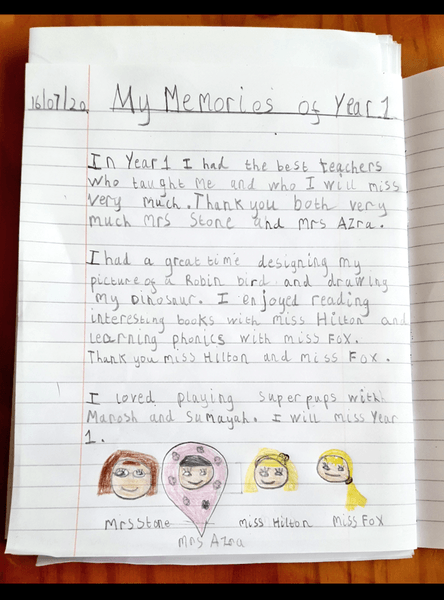 16/07/20 My Memories of Year 1
In Year 1 I had the best teachers
who taught me and who I will miss
very much. Thank you both very
much Mrs Stone and Mrs Azra.
I had a great time designing my
picture of a Robin bird and drawing
my Dinosaur. I enjoyed reading
interesting books with miss Hilton and
learning phonics with miss Fox.
Thank you miss Hilton and miss Fox.
I loved playing Super pups with
Manosh and Sumayah. I will miss Year
1.
Mrs Stone Miss Hilton Miss Fox
Mrs Azra